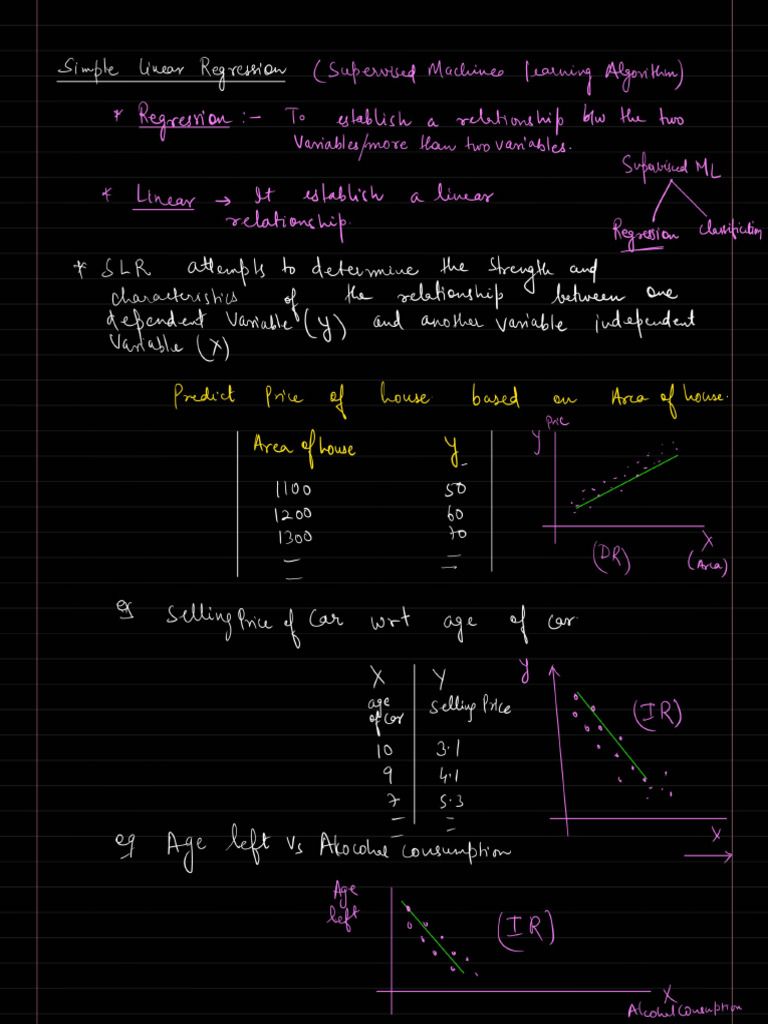 Simple Linear Regression (Supervised Machines learning Algorithm)
* Regression :- To establish a relationship b/w the two
Variables/more than two variables.
Supervised ML
Regression Classification
* Linear → It establish a linear
relationship.
* SLR attempts to determine the strength and
characteristics of the relationship between one
dependent variable (Y) and another variable independent
variable (X)
Predict Price of house based on Area of house.
Area of house Y
1100 50
1200 60
1300 70
Y Price
(DR)
X
(Area)
eg Selling Price of Car wrt age of car.
X Y
age
of car Selling Price
10 3.1
9 4.1
7 5.3
Y
(IR)
X
eg Age left vs Alcocohol Consumption
Age
left
(IR)
X
Alcohol Consumption